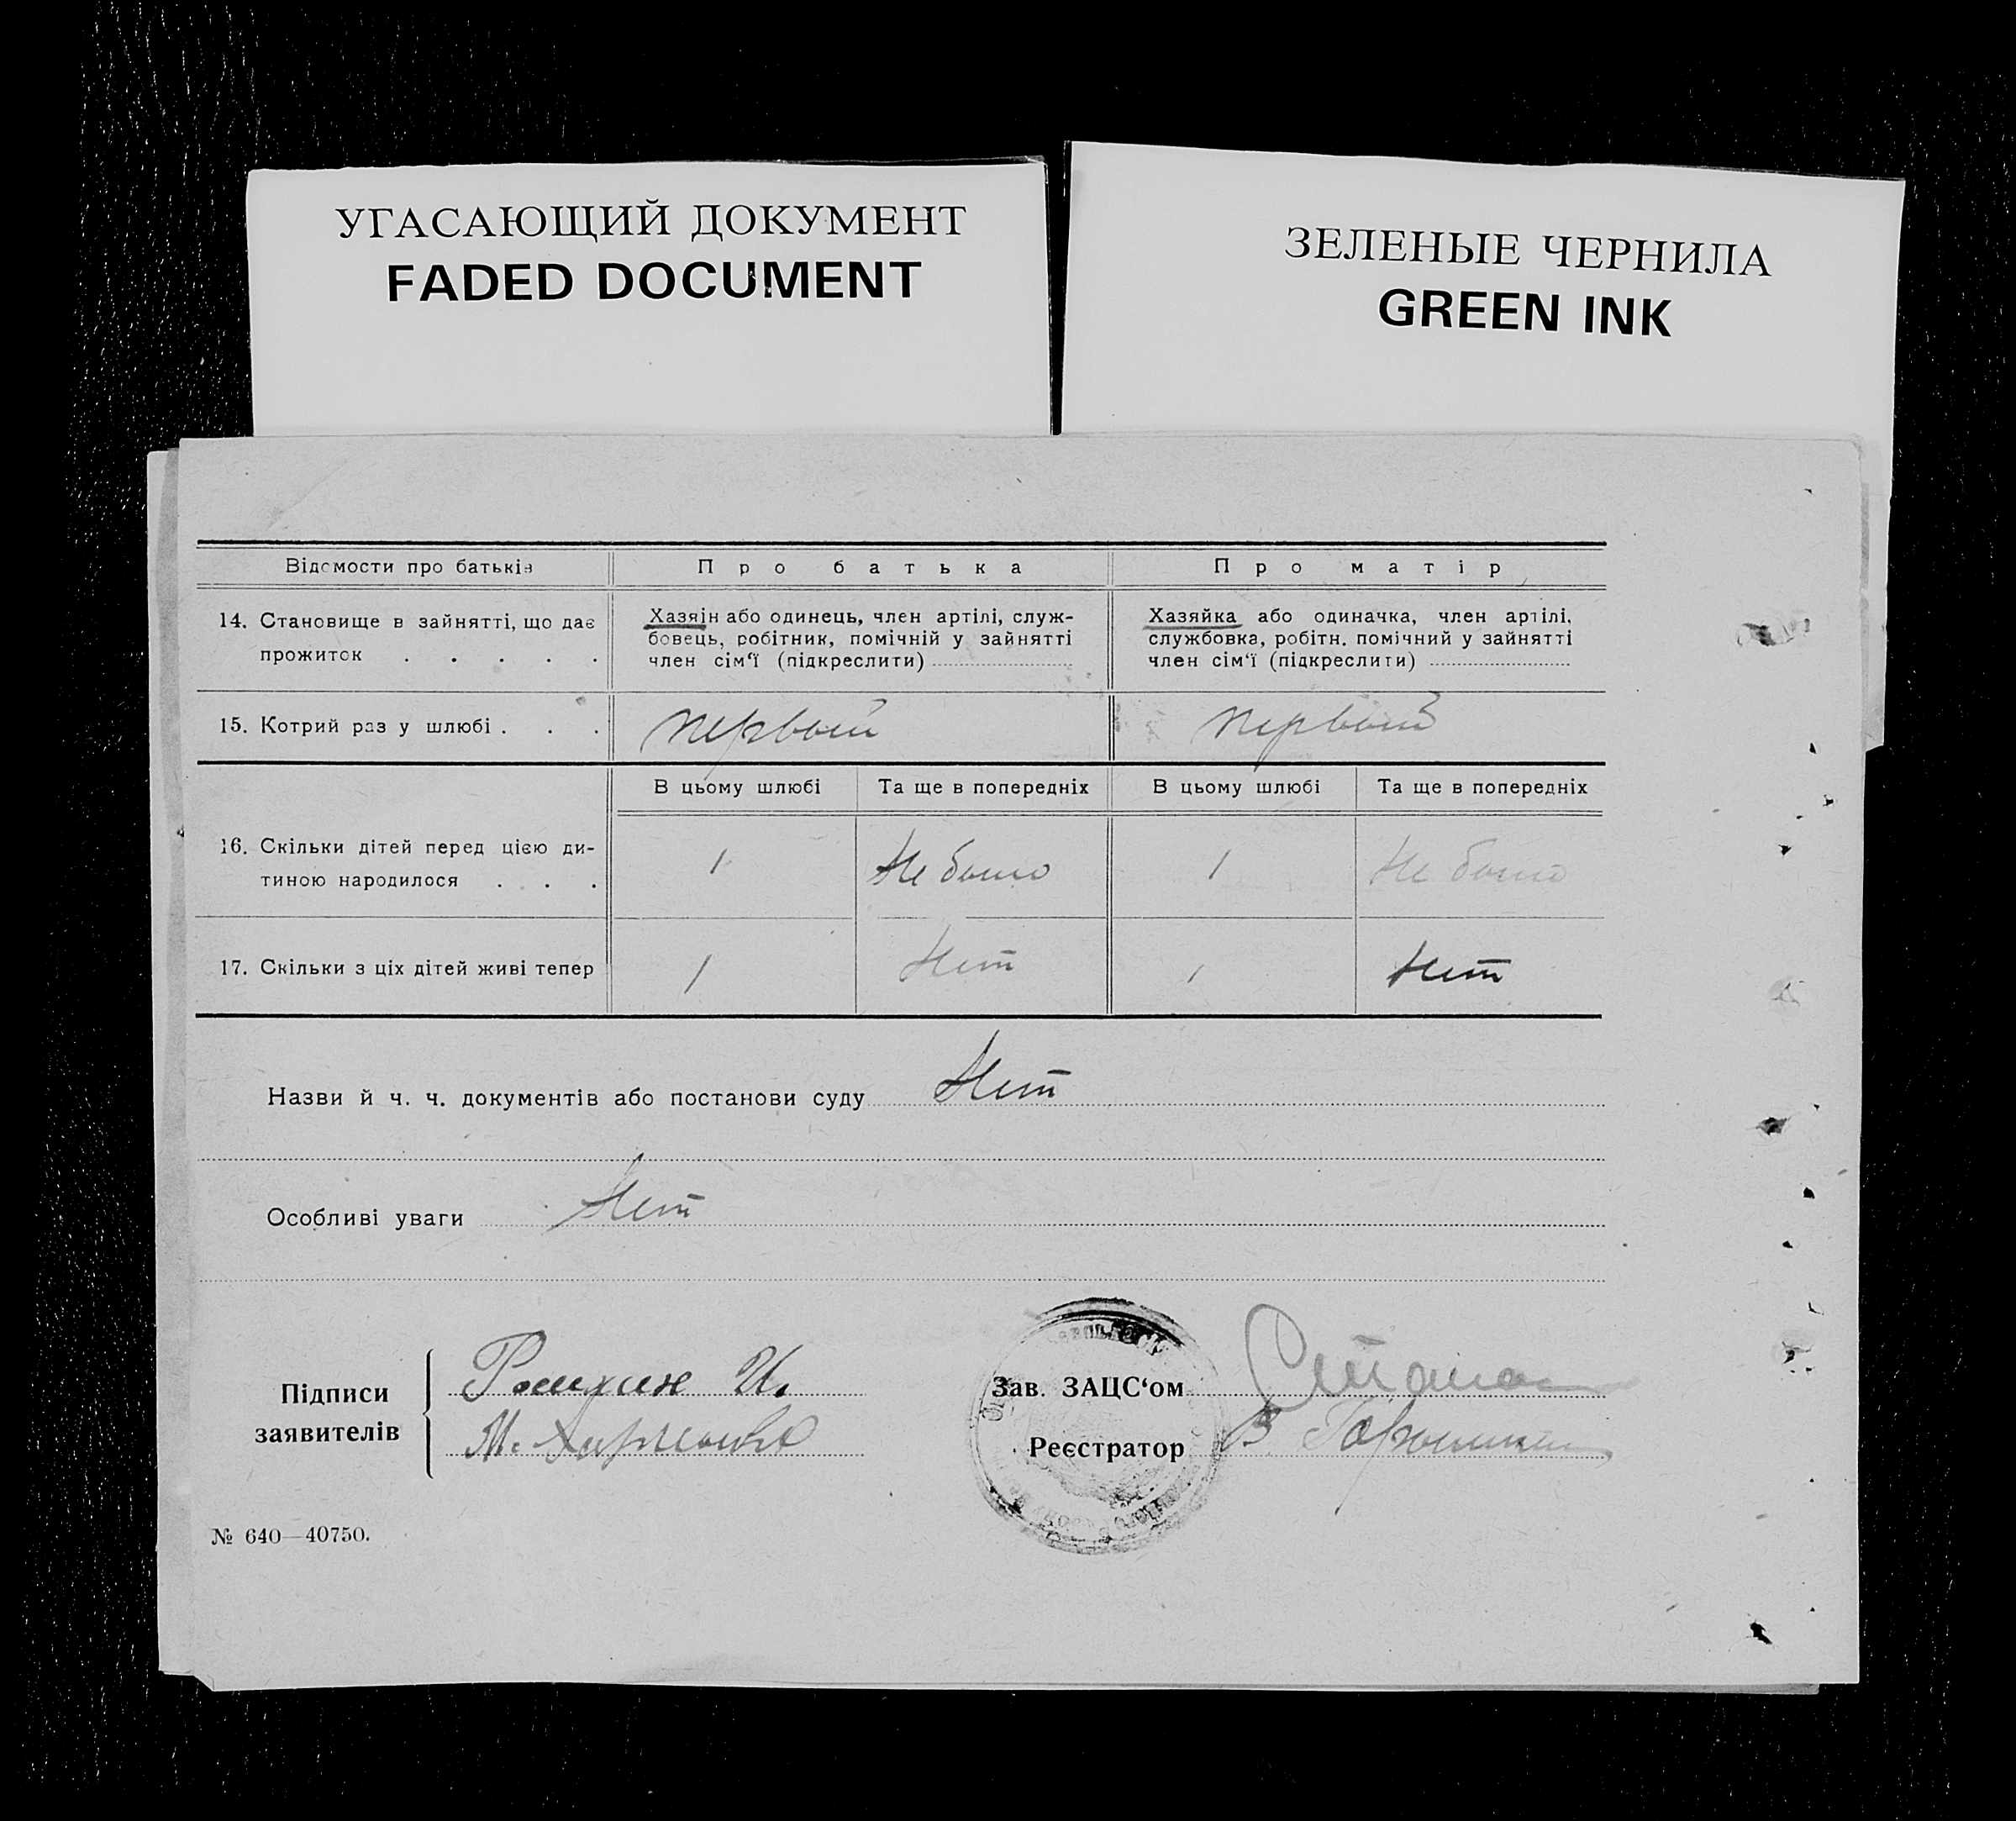 УГАСАЮЩИЙ ДОКУМЕНТ
FADED DOCUMENT
ЗЕЛЕНЫЕ ЧЕРНИЛА
GREEN INK
Відомости про батьків
Про батька
Про матір
14. Становище в зайнятті, що дає
прожиток . . . . .
Хазяїн або одинець, член артілі, служ-
бовець, робітник, помічній у зайнятті
член сім‘ї (підкреслити)
Хазяйка або одиначка, член артілі,
службовка, робітн. помічний у зайнятті
член сім‘ї (підкреслити)
15. Котрий раз у шлюбі . . .
первый
первый
В цьому шлюбі
Та ще в попередніх
В цьому шлюбі
Та ще в попередніх
16. Скільки дітей перед цією ди-
тиною народилося . . .
1
Не было
1
Не было
17. Скільки з ціх дітей живі тепер
1
Нет
1
Нет
Назви й ч. ч. документів або постанови суду Нет
Особливі уваги Нет
Підписи
заявителів
И.
М.
Зав. ЗАЦС‘ом
Реєстратор В.
№ 640—40750.